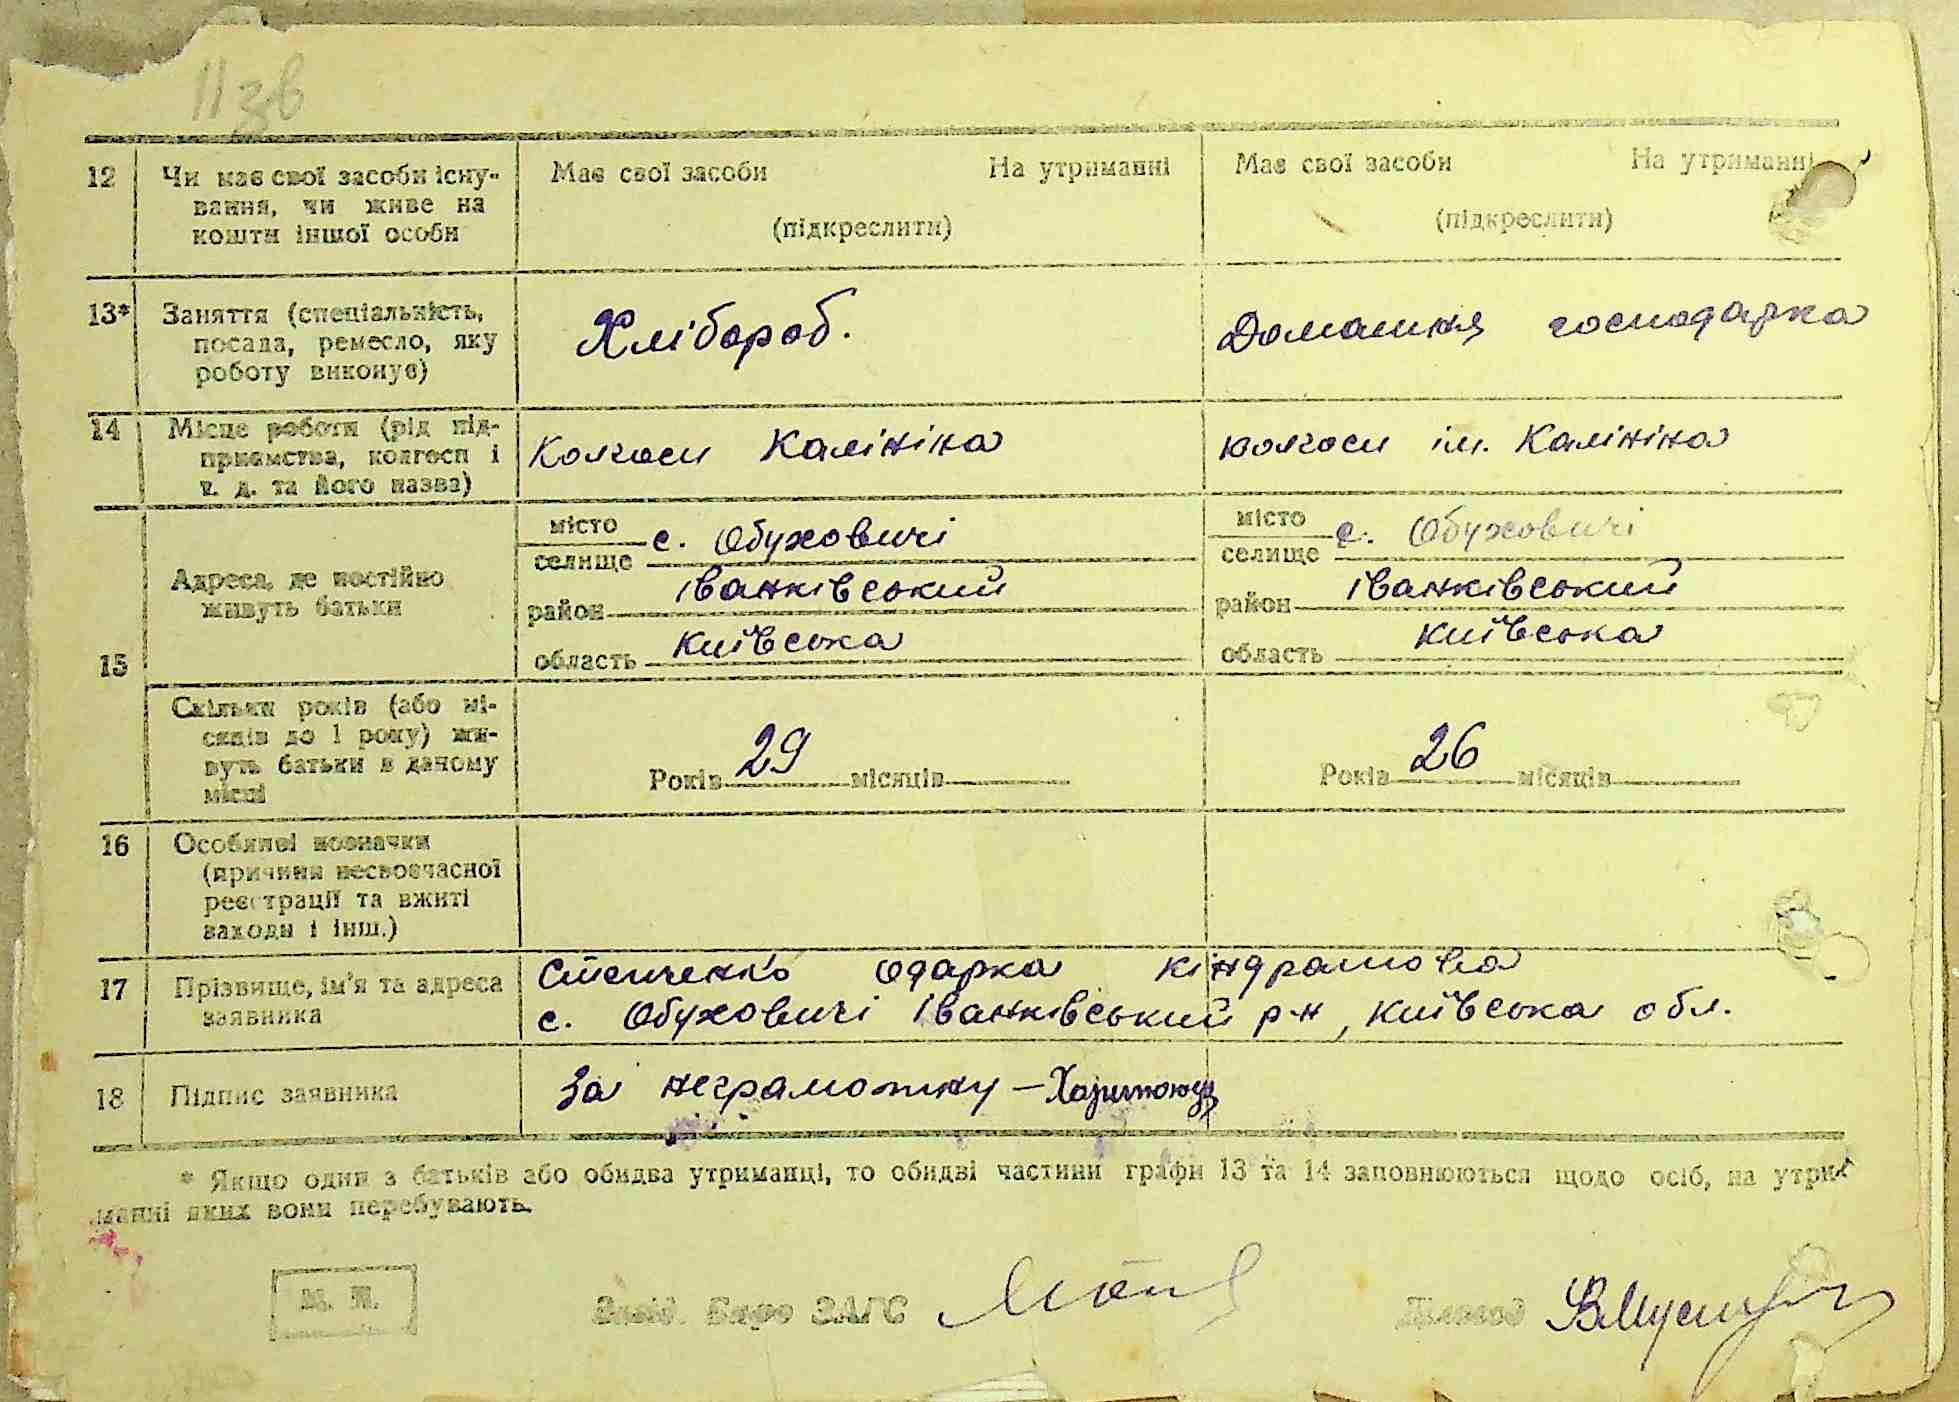 11зв
12 Чи має свої засоби існу-
вання, чи живе на
кошти іншої особи
Має свої засоби На утриманні
(підкреслити)
Має свої засоби На утриманні
(підкреслити)
13* Заняття (спеціальність,
посада, ремесло, яку
роботу виконує)
Хлібороб.
Домашня господарка
14 Місце роботи (рід під-
приємства, колгосп і
т. д. та його назва)
Колгосп Калініна
колгосп ім. Калініна
15 Адреса, де постійно
живуть батьки
місто
селище с. Обуховичі
район Іванківський
область Київська
місто
селище с. Обуховичі
район Іванківський
область Київська
Скільки років (або мі-
сяців до 1 року) жи-
вуть батьки в даному
місці
Років 29 місяців
Років 26 місяців
16 Особливі позначки
(причини несвоєчасної
реєстрації та вжиті
заходи і інш.)
17 Прізвище, ім'я та адреса
заявника
Степченко Одарка Кіндратовна
с. Обуховичі Іванківський р-н, Київська обл.
18 Підпис заявника
За неграмотну –
* Якщо один з батьків або обидва утриманці, то обидві частини графи 13 та 14 заповнюються щодо осіб, на утри-
манні яких вони перебувають.
М. П.
Завід. Бюро ЗАГС
Діловод